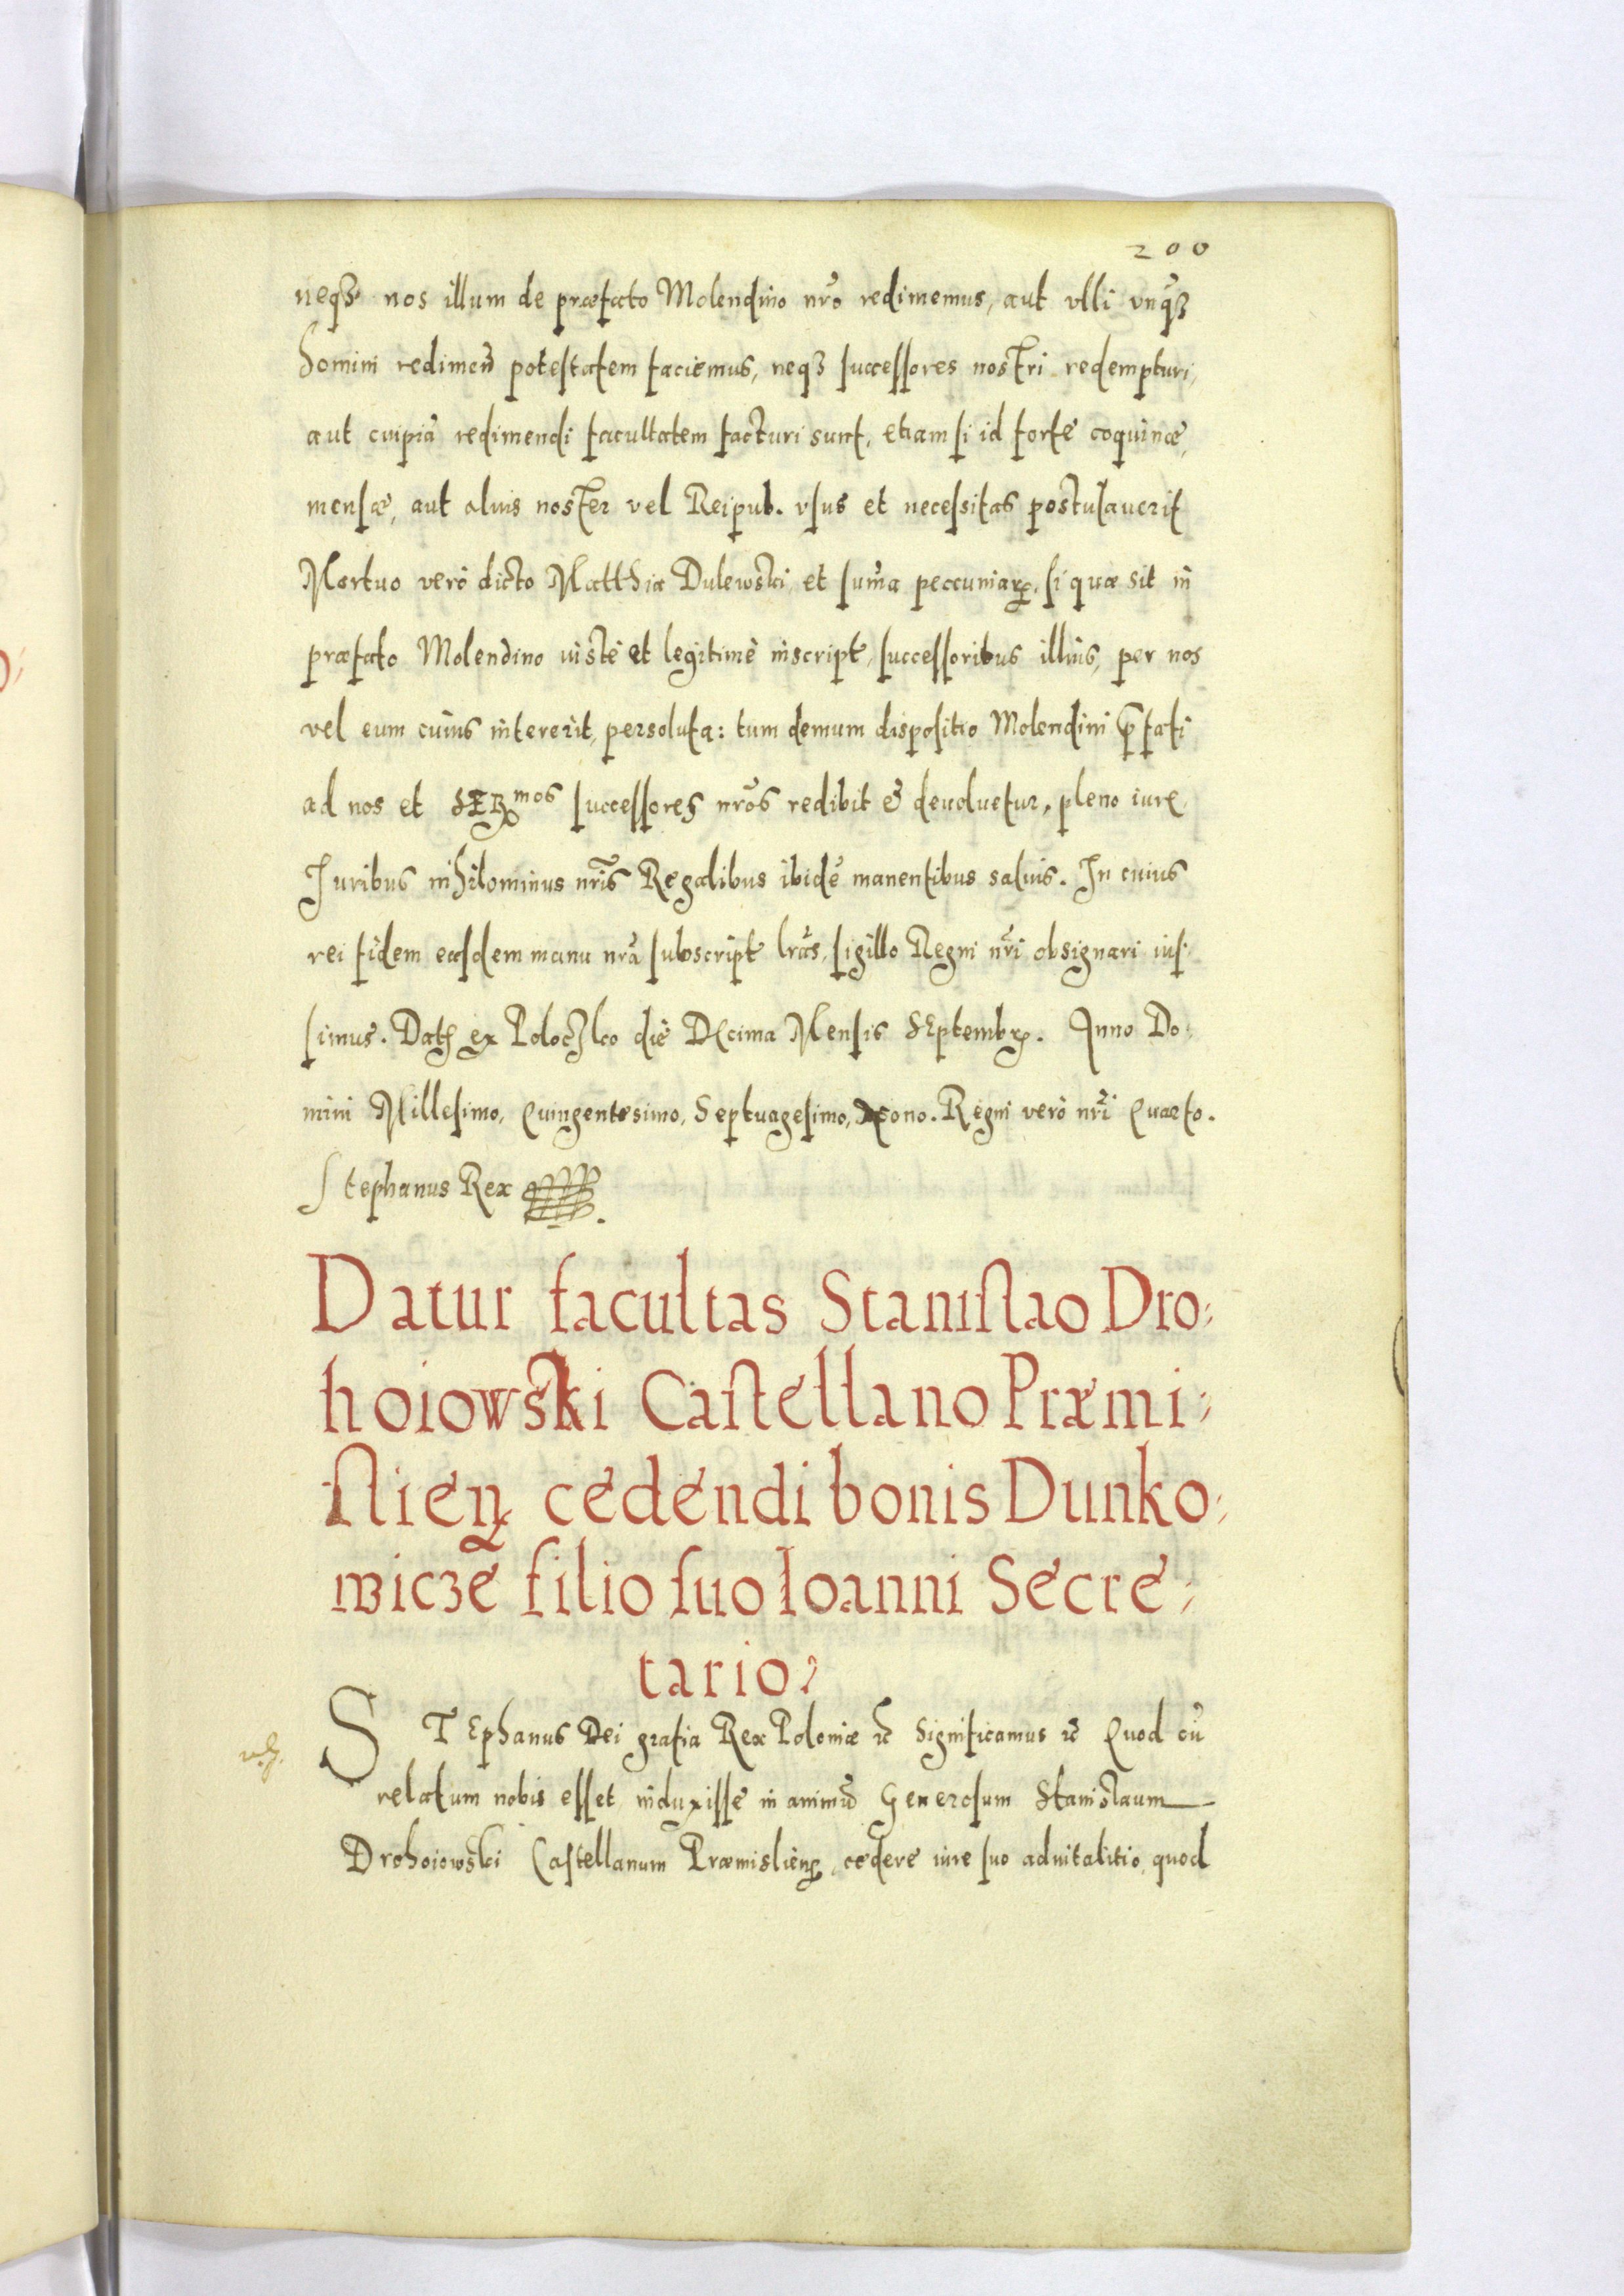 200
neqꝫ nos illum de præfato Molendino nr̃o redimemus, aut vlli vnq̃ꝫ
homini redimen̄ potestatem faciemus, neqꝫ successores nostri redempturi,
aut cuipiã redimendi facultatem facturi sunt, etiam si id forte coquinæ,
mensæ, aut aluis noster vel Reipub. vsus et necessitas postulauerit
Mortuo verò dicto Matthia Dulewski, et sum̃a peccuniarꝝ, si quæ sit in
præfato Molendino iustè et legitimè inscript, successoribus illius, per nos
vel eum cuius intererit, persoluta: tum demum dispositio Molendini p̃fati
ad nos et SERmos successores nr̃os redibit & deuoluetur, pleno iure,
Juribus nihilominus nr̃is Regalibus ibidẽ manentibus saluis. In cuius
rei fidem easdem manu nr̃a subscript lr̃as, sigillo Regni nr̃i obsignari ius-
simus. Dat ex Poloczko die Decima Mensis Septembr. Anno Do-
mini Millesimo, Quingentesimo, Septuagesimo, Nono. Regni verò nr̃i Quarto.
Stephanus Rex
Datur facultas Stanislao Dro-
hoiowski Castellano Præmi-
slien cedendi bonis Dunko-
wicze filio suo Ioanni Secre-
tario.
STEphanus Dei gratia Rex Poloniæ ꝛc̃ Significamus ꝛc̃ Quod cũ
relatum nobis esset, induxisse in animũ Generosum Stanislaum
Drohoiowski Castellanum Præmislien, cedere iure suo aduitalitio, quod